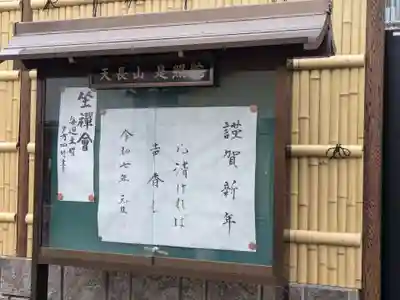 天長山 是照院
謹賀新年
心清ければ
声香し
令和七年 元旦
坐禪會
毎週土曜